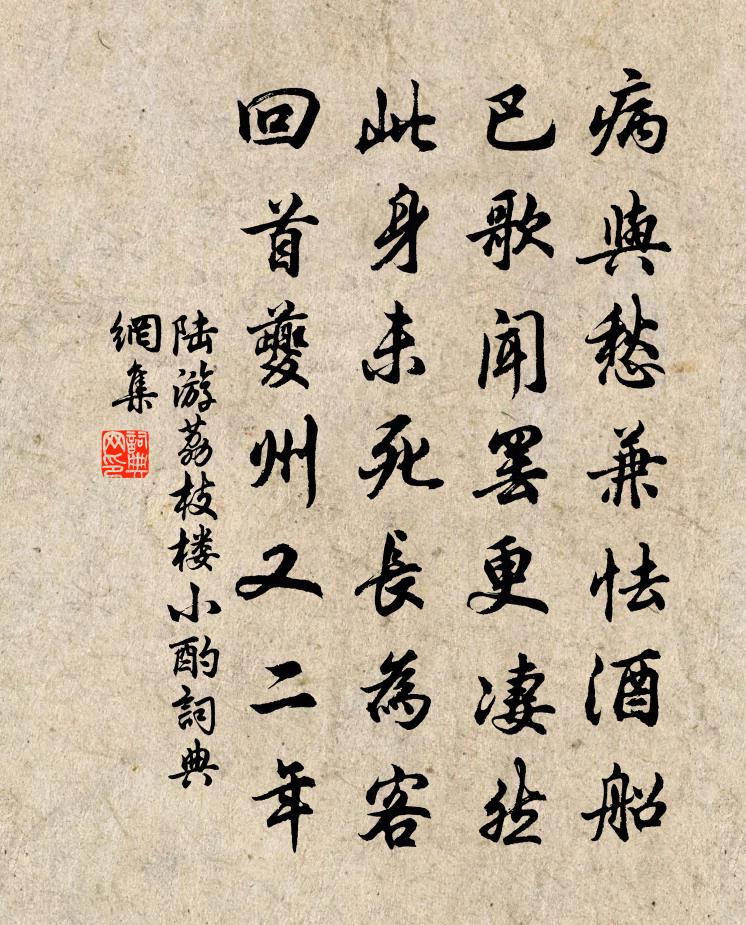 病與愁兼怯酒船
巴歌聞罷更淒然
此身未死長為客
回首夔州又二年
陆游荔枝楼小酌詞典
網集
詞典
网印